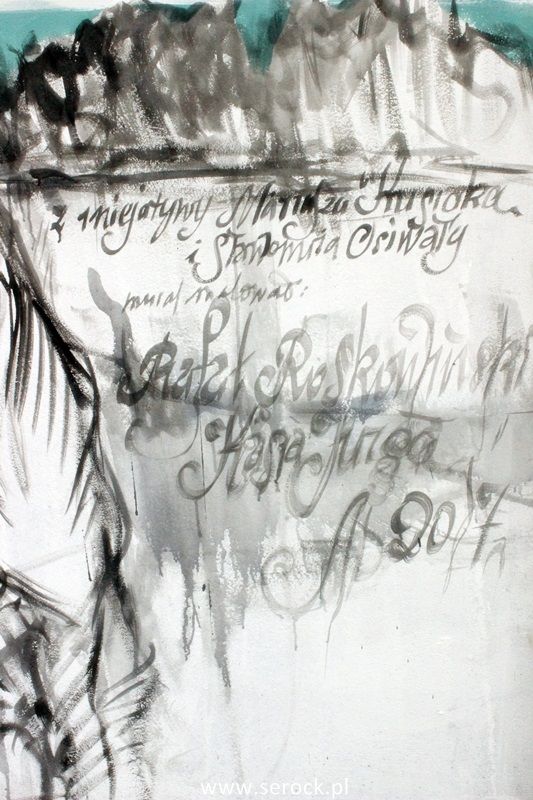 z inicjatywy Marka Kusioka
i Sławomira Osiwały
mural malował:
Rafał Roskowiński
Kasia Jurga
A 2017
www.serock.pl